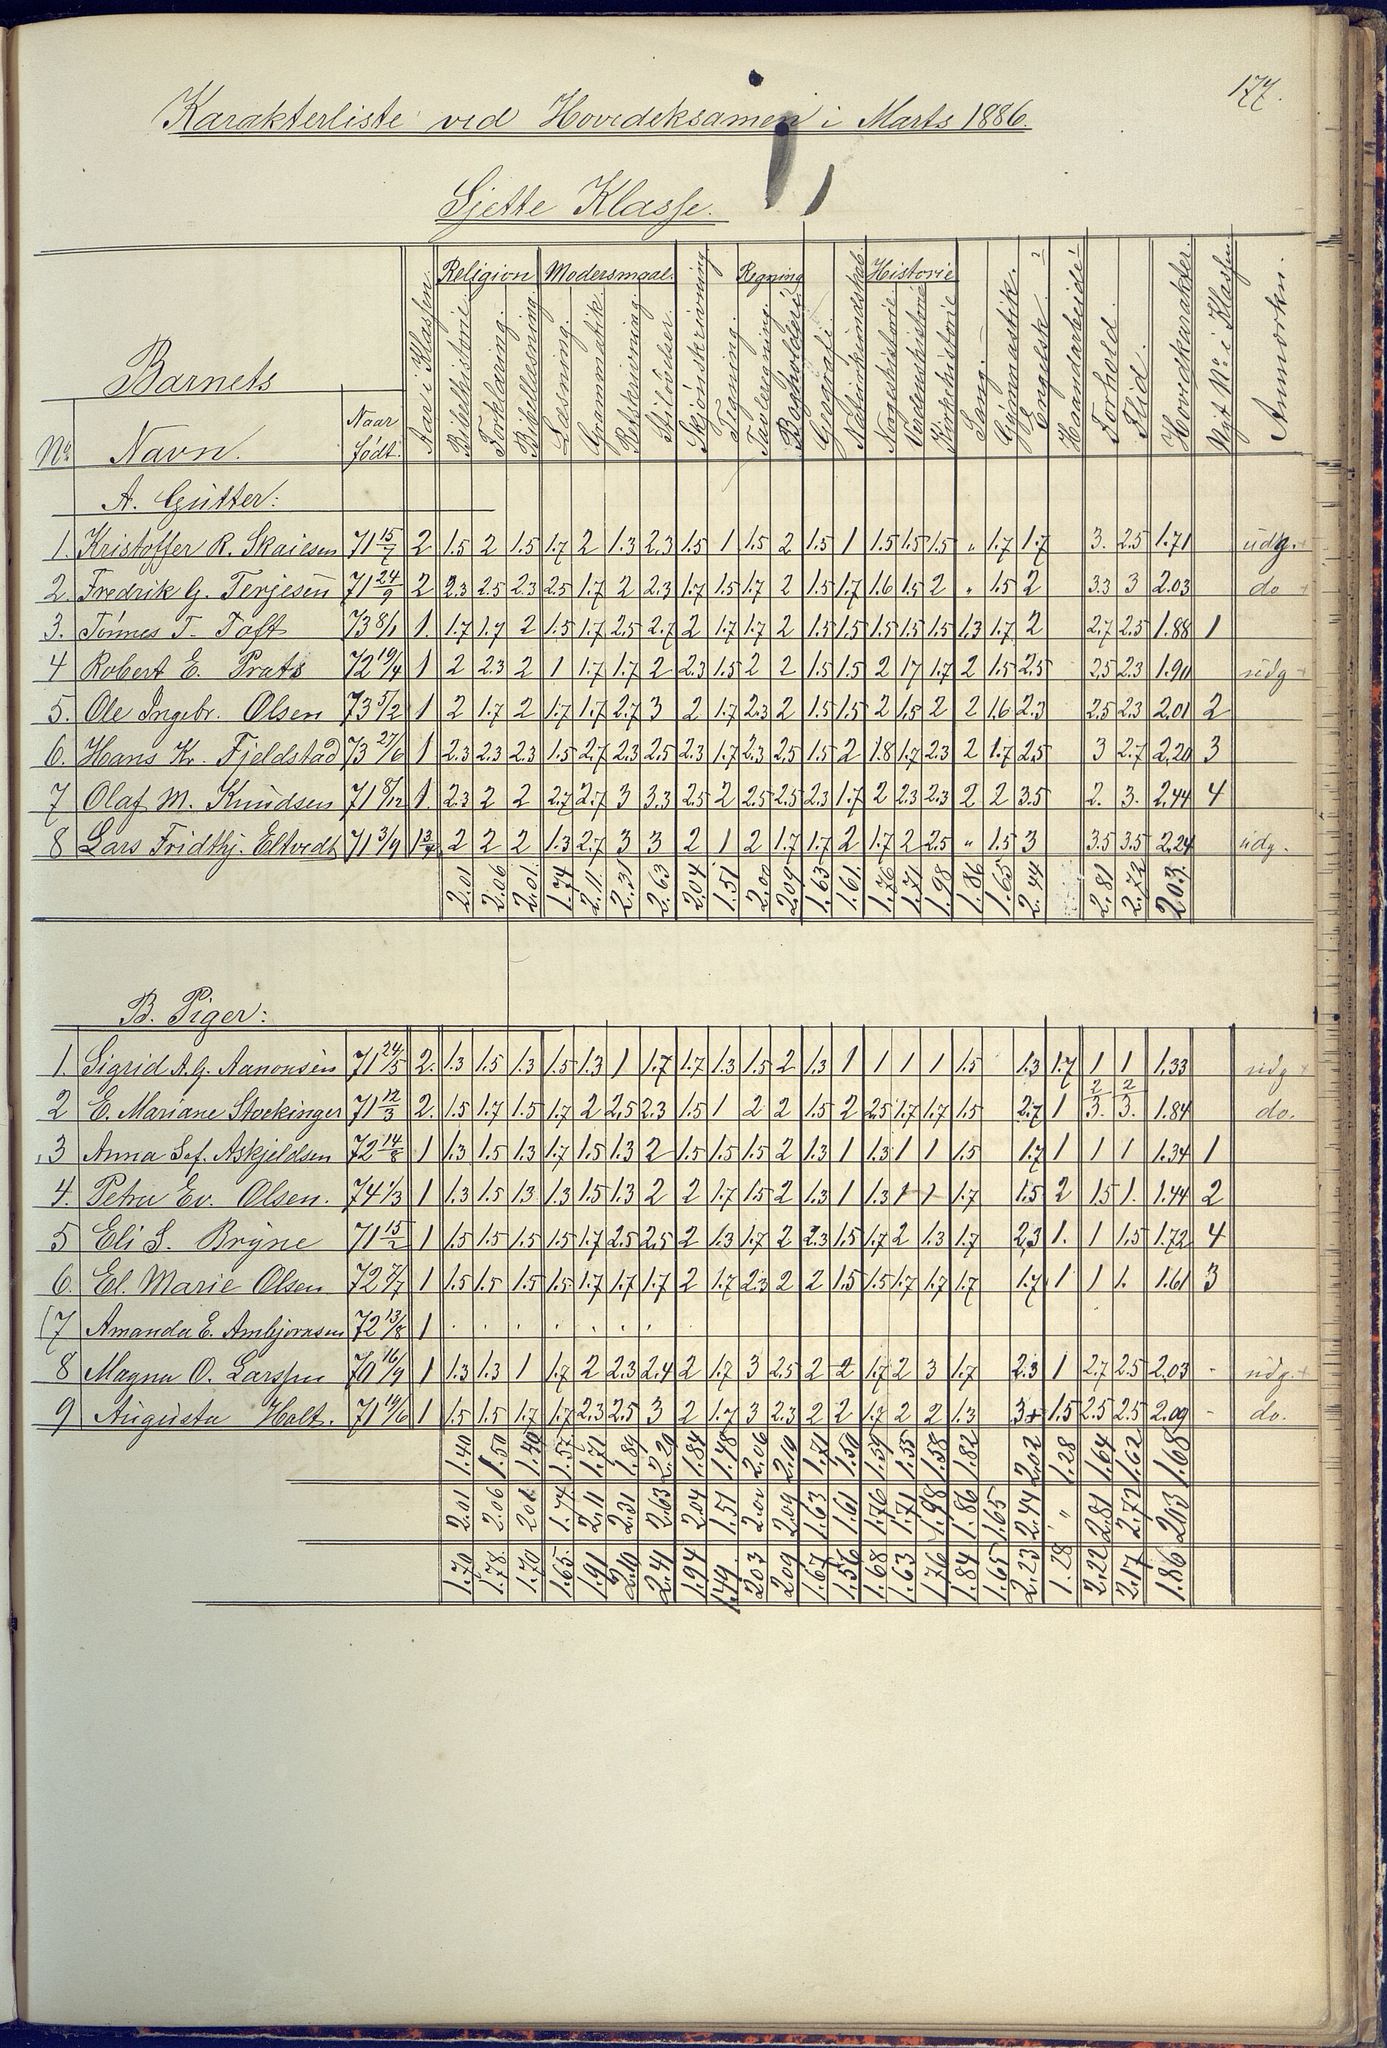 177.
Karakterliste ved Hovedeksamen i Marts 1886.
Sjette Klasse.
Barnets
No. Navn. Naar født. Aar i Klassen. Religion Bibelhistorie. Forklaring. Bibellæsning. Modersmaal. Læsning. Grammatik. Retskrivning. Stiløvelser. Skjønskrivning Tegning. Regning Tavleregning. Bogholderi Geografi. Naturkundskab. Historie Norgeshistorie. Verdenshistorie Kirkehistorie Sang. Gymnastik. Engelsk. Haandarbeide Forhold. Flid. Hovedkarakter. Nyt No. i Klassen Anmærkn.
A. Gutter:
1. Kristoffer R. Skaiesen 71 15/7 2 1.5 2 1.5 1.7 2 1.3 2.3 1.5 1 1.5 2 1.5 1 1.5 1.5 1.5 " 1.7 1.7 3. 2.5 1.71 udg. +
2. Fredrik G. Terjesen 71 24/9 2 2.3 2.5 2.3 2.5 1.7 2 2.3 1.7 1.5 1.7 2 1.5 1.7 1.6 1.5 2 " 1.5 2 3.3 3 2.03 do +
3. Tønnes T. Toft 73 8/1 1. 1.7 1.7 2 1.5 1.7 2.5 2.7 2 1.7 1.7 2 1.5 1.5 1.5 1.5 1.5 1.3 1.7 2 2.7 2.5 1.88 1
4 Robert E. Prats 72 19/4 1 2 2.3 2 1 1.7 1.7 2 2.3 1.5 2 2 1.5 1.5 2 1.7 1.7 2 1.5 2.5 2.5 2.3 1.90 udg +
5. Ole Ingebr. Olsen 73 5/2 1 2 1.7 2 1.7 1.7 2.7 3 2 1.7 2.3 2 1.5 1.5 2 1.5 2 2 1.6 2.3 2.5 2.3 2.01 2
6. Hans Kr. Fjeldstad 73 27/6 1 2.3 2.3 2.3 1.5 2.7 2.3 2.5 2.3 1.7 2.3 2.5 1.5 2 1.8 1.7 2.3 2 1.7 2.5 3 2.7 2.20 3
7 Olaf M. Knudsen 71 8/12 1. 2.3 2 2 2.7 2.7 3 3.3 2.5 2 2.5 2.5 2.3 1.7 2 2.3 2.3 2 2 3.5 2. 3. 2.44 4
8 Lars Fridthj. Eltvedt 71 3/9 1 3/4 2 2 2 1.3 2.7 3 3 2 1 2 1.7 1.7 2 1.7 2 2.5 " 1.5 3 3.5 3.5 2.24 udg.
2.01 2.06 2.01. 1.74 2.11 2.31 2.63 2.04 1.51 2.00 2.09 1.63 1.61. 1.76 1.71 1.98 1.86 1.65 2.44 2.81 2.72 2.03.
B. Piger:
1. Sigrid A. G. Aanonsen 71 24/5 2. 1.3 1.5 1.3 1.5 1.3 1 1.7 1.7 1.3 1.5 2 1.3 1 1 1 1 1.5 1.3 1.7 1 1 1.33 udg +
2 E. Mariane Stockinger 71 12/3 2. 1.5 1.7 1.5 1.7 2 2.5 2.3 1.5 1 2 2 1.5 2 2.5 1.7 1.7 1.5 2.7 1 2/3. 2/3. 1.84 do.
3 Anna Sef. Askjeldsen 72 14/8 1 1.3 1.5 1.3 1.7 1.5 1.3 2 1.5 1.5 1.5 2 1.3 1 1.3 1 1 1.5 1.7 1 1 1 1.34 1
4. Petra Ev. Olsen. 74 1/3 1 1.3 1.5 1.3 1.3 1.5 1.3 2 2 1.7 1.5 2 1.3 1 1.3 1 1 1.7 1.5 2 1.5 1. 1.44 2
5 Eli S. Bryne 71 15/2 1 1.5 1.5 1.5 1.5 1.7 2.5 2.5 2 1.3 1.7 2 2.3 1.5 1.7 2 1.3 1.7 2.3 1. 1 1.5 1.72 4
6. El. Marie Olsen 72 1 1.5 1.5 1.5 1.5 1.7 1.7 1.7 2 1.7 2.3 2 2 1.5 1.5 1.7 1.7 1.7 1.7 1 1 1. 1.61 3
7 Amanda E. Ambjørnsen 72 13/8 1 . . . . . . .
8 Magna O. Larssen 70 16/9 1 1.3 1.3 1 1.7 2 2.3 2.4 2 1.7 3 2.5 2 2 1.7 2 3 1.7 2.3 1 2.7 2.5 2.03 - udg. +
9 Augusta Holt. 71 19/6 1 1.5 1.5 1.7 1.7 2.3 2.5 3 2 1.7 3 2.3 2 2 1.7 2 2 1.3 3+ 1.5 2.5 2.5 2.09 - do.
1.40 1.50 1.40 1.57 1.71 1.89 2.20 1.84 1.48 2.06 2.10 1.71 1.50 1.59 1.55 1.58 1.82 2.02 1.28 1.64 1.62 1.68
2.01 2.06 2.01 1.74 2.11 2.31 2.63 2.04 1.51 2.00 2.09 1.63 1.61 1.76 1.71 1.98 1.86 1.65 2.44 " 2.81 2.72 2.03
1.70 1.78. 1.70 1.65. 1.91 2.10 2.41 1.94 1.49. 2.03 2.09 1.67 1.56 1.68 1.63 1.76 1.84 1.65 2.23 1.28 2.22 2.17 1.86